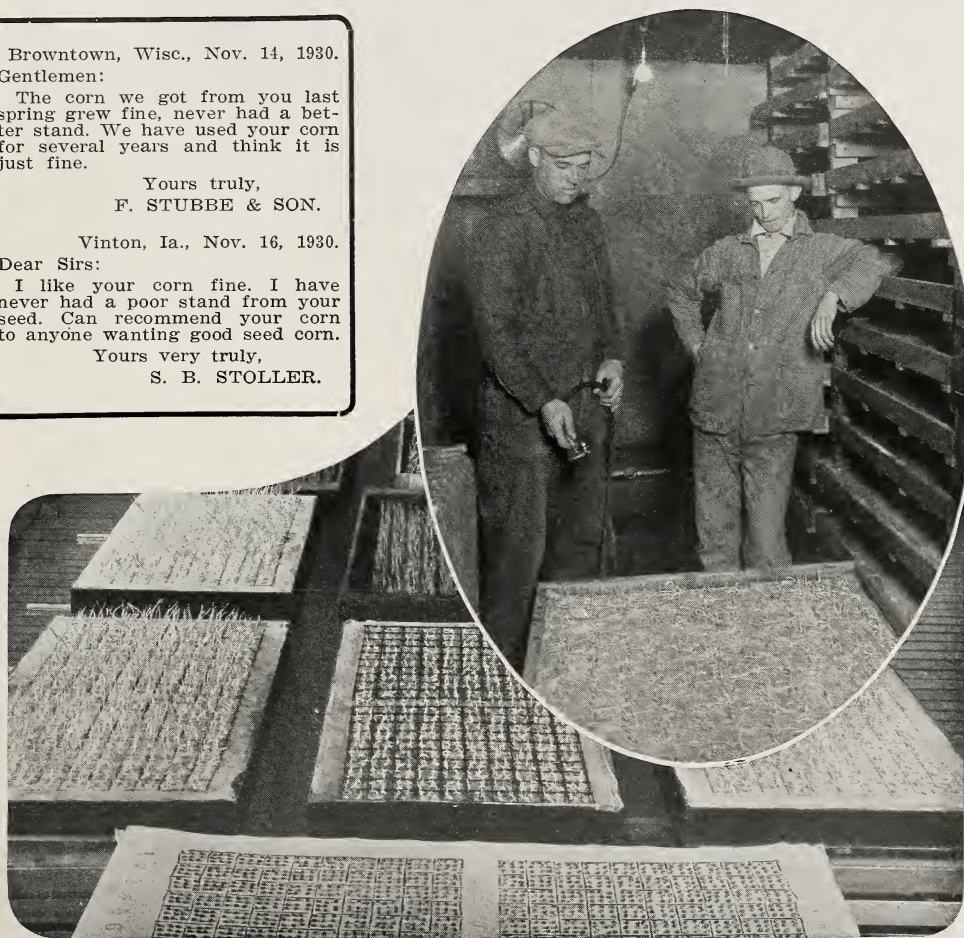 Browntown, Wisc., Nov. 14, 1930.
Gentlemen:
The corn we got from you last
spring grew fine, never had a bet-
ter stand. We have used your corn
for several years and think it is
just fine.
Yours truly,
F. STUBBE & SON.
Vinton, Ia., Nov. 16, 1930.
Dear Sirs:
I like your corn fine. I have
never had a poor stand from your
seed. Can recommend your corn
to anyone wanting good seed corn.
Yours very truly,
S. B. STOLLER.